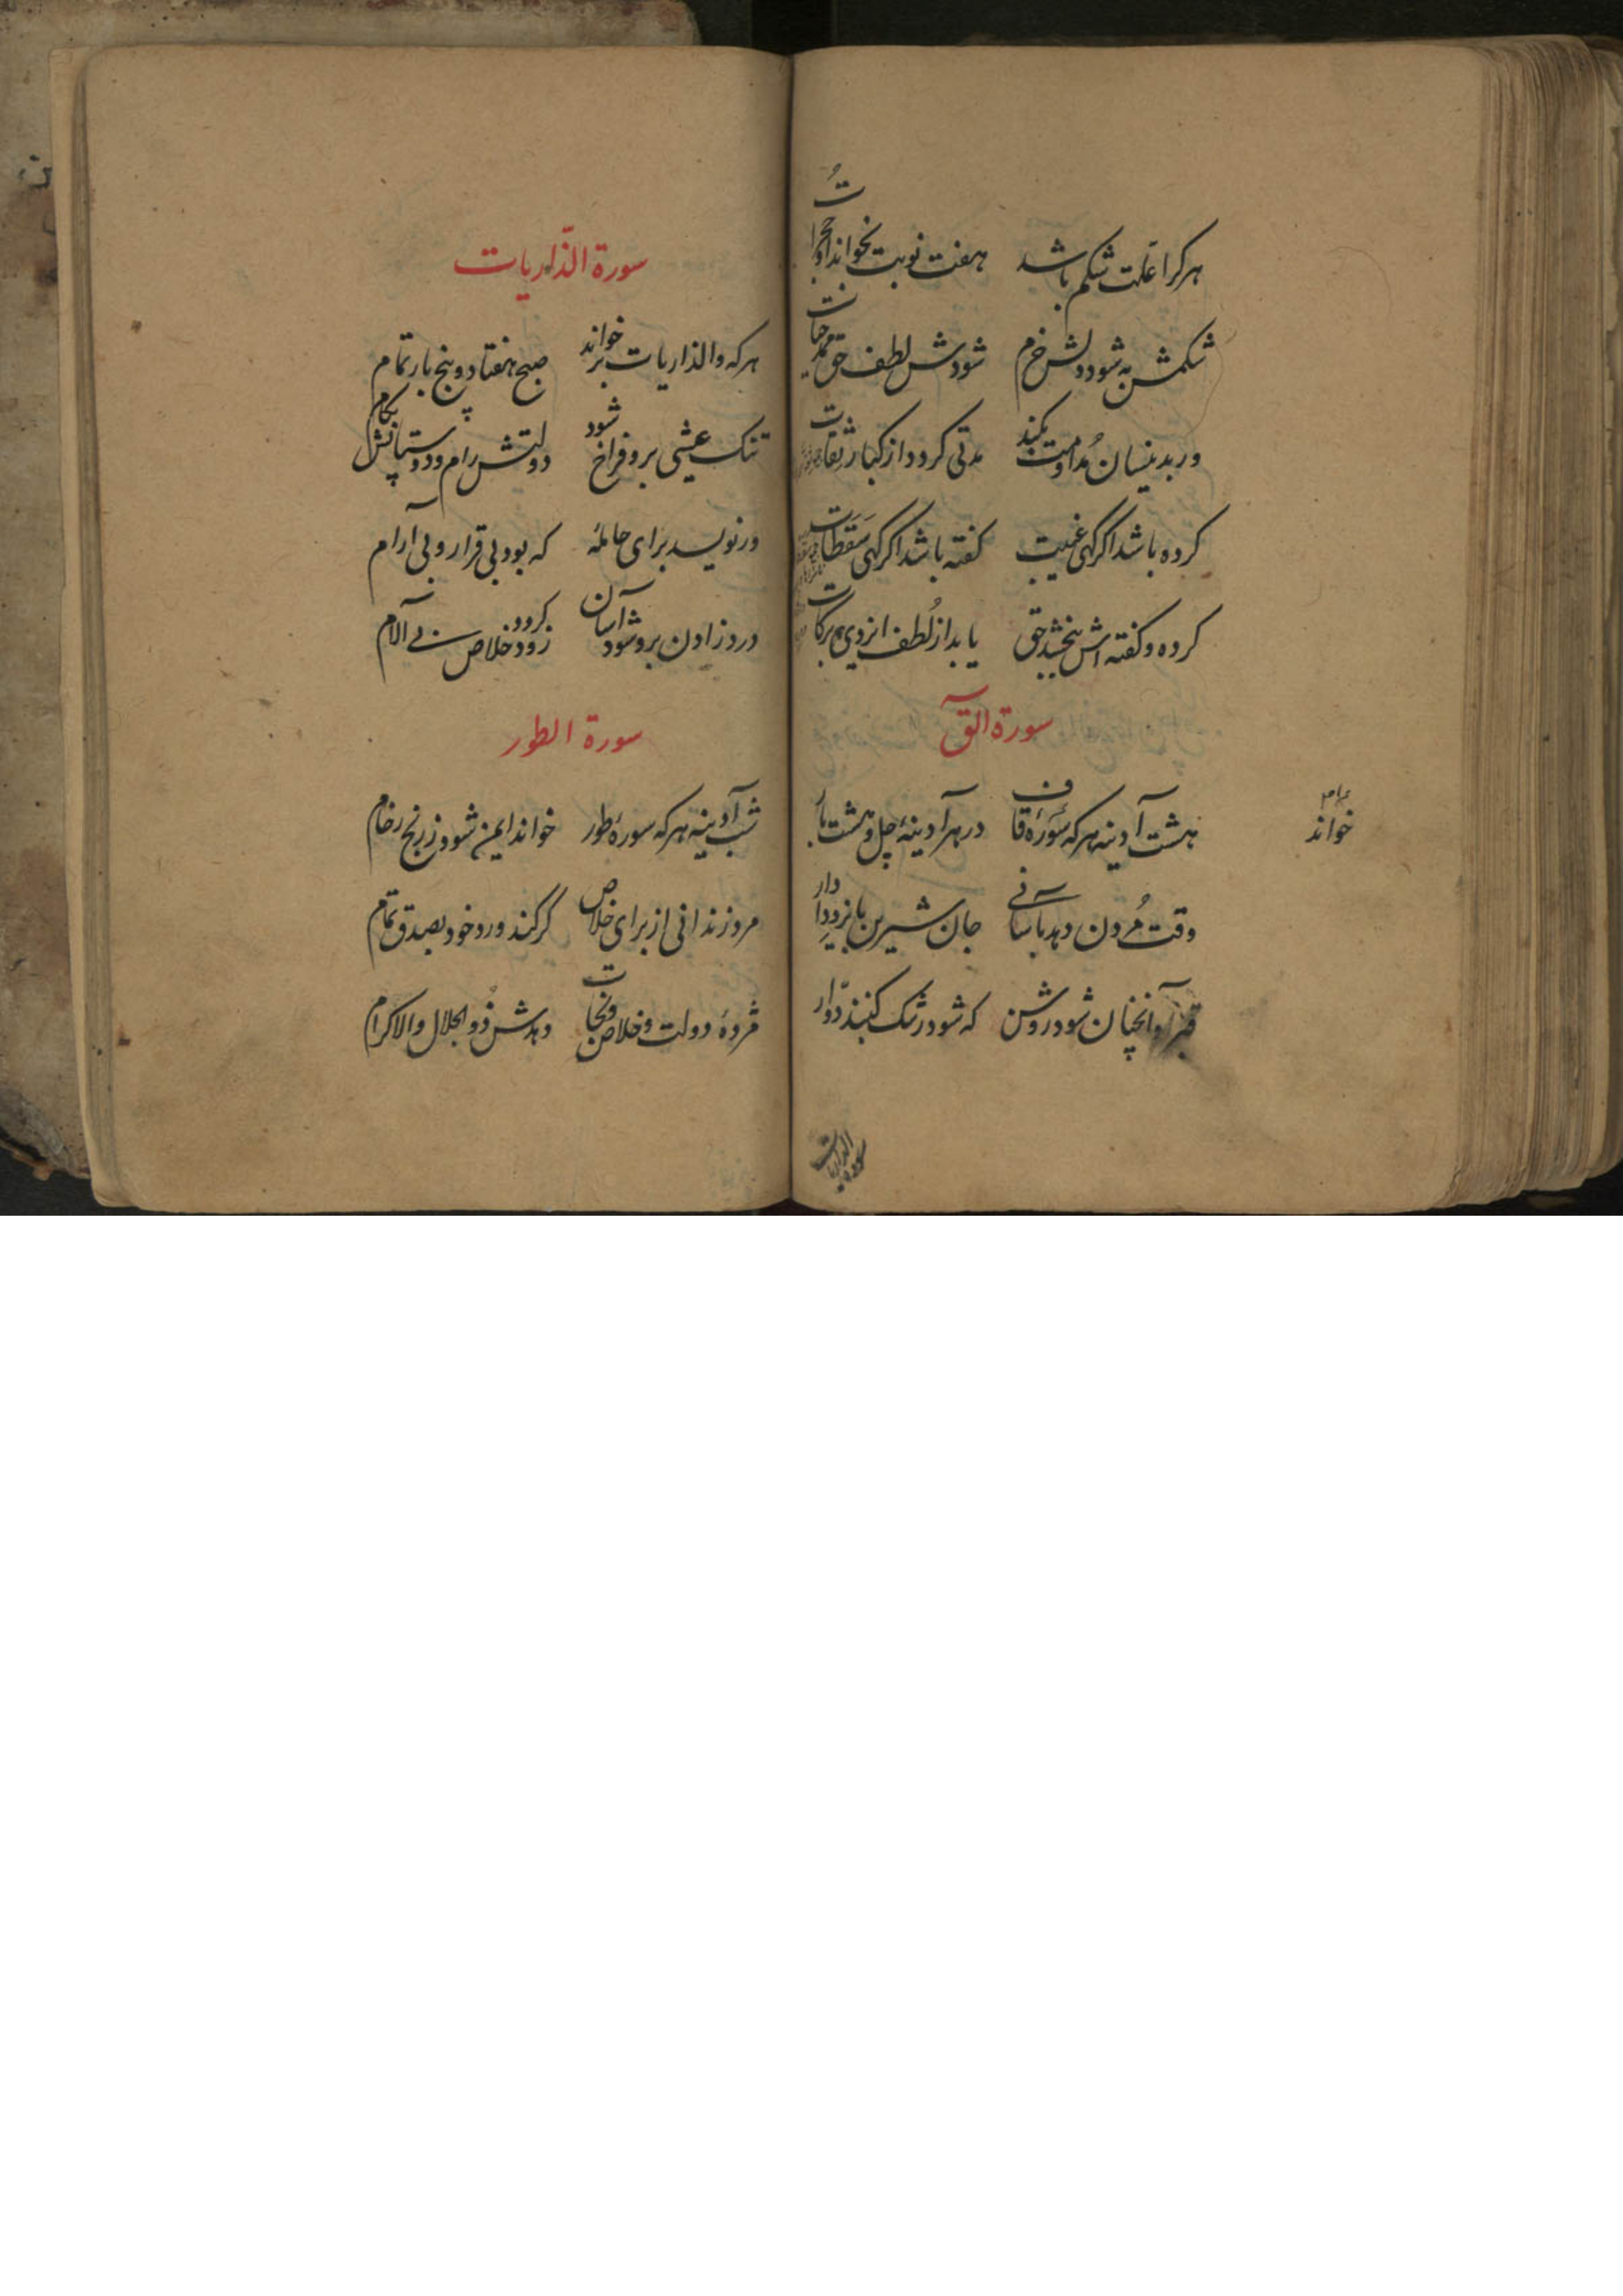 هر کرا علت شکم باشد هفت نوبت بخواند او حجرات
شکمش به شود دلش خرم شودش لطف حق
ور بدینسان مداومت بکند مدتی کردد از کبار ثقات
کرده باشد اکر کهی غیبت کفته باشد اکر کهی سقطات
کرده و کفته اش ببخشد حق یابد از لطف ایزدی برکات
سورة القٓ
هشت آدینه هر که سورۀ قاف در هر آدینۀ چل و هشت بار
خواند
وقت مردن دهد بآسانی جان شیرین بایزد دادار
قبر او آنچنان شود روشن که شود رشک کنبد دوّار
سورة الذاریات
سورة الذّاریات
هر که والذاریات بر خواند صبح هفتاد و پنج بار تمام
تنک عیشی برو فراخ شود دولتش رام و دوستانش بکام
ور نویسد برای حاملۀ که بود بی قرار و بی آرام
درد زادن برو شود آسان زود کردد خلاص بی آلام
سورة الطور
شب آدینه هر که سورۀ طور خواند ایمن شود ز رنج
مرد زندانی از برای خلاص کر کند ورد خود بصدق تمام
مژدۀ دولت و خلاص و نجات دهدش ذو الجلال والاکرام